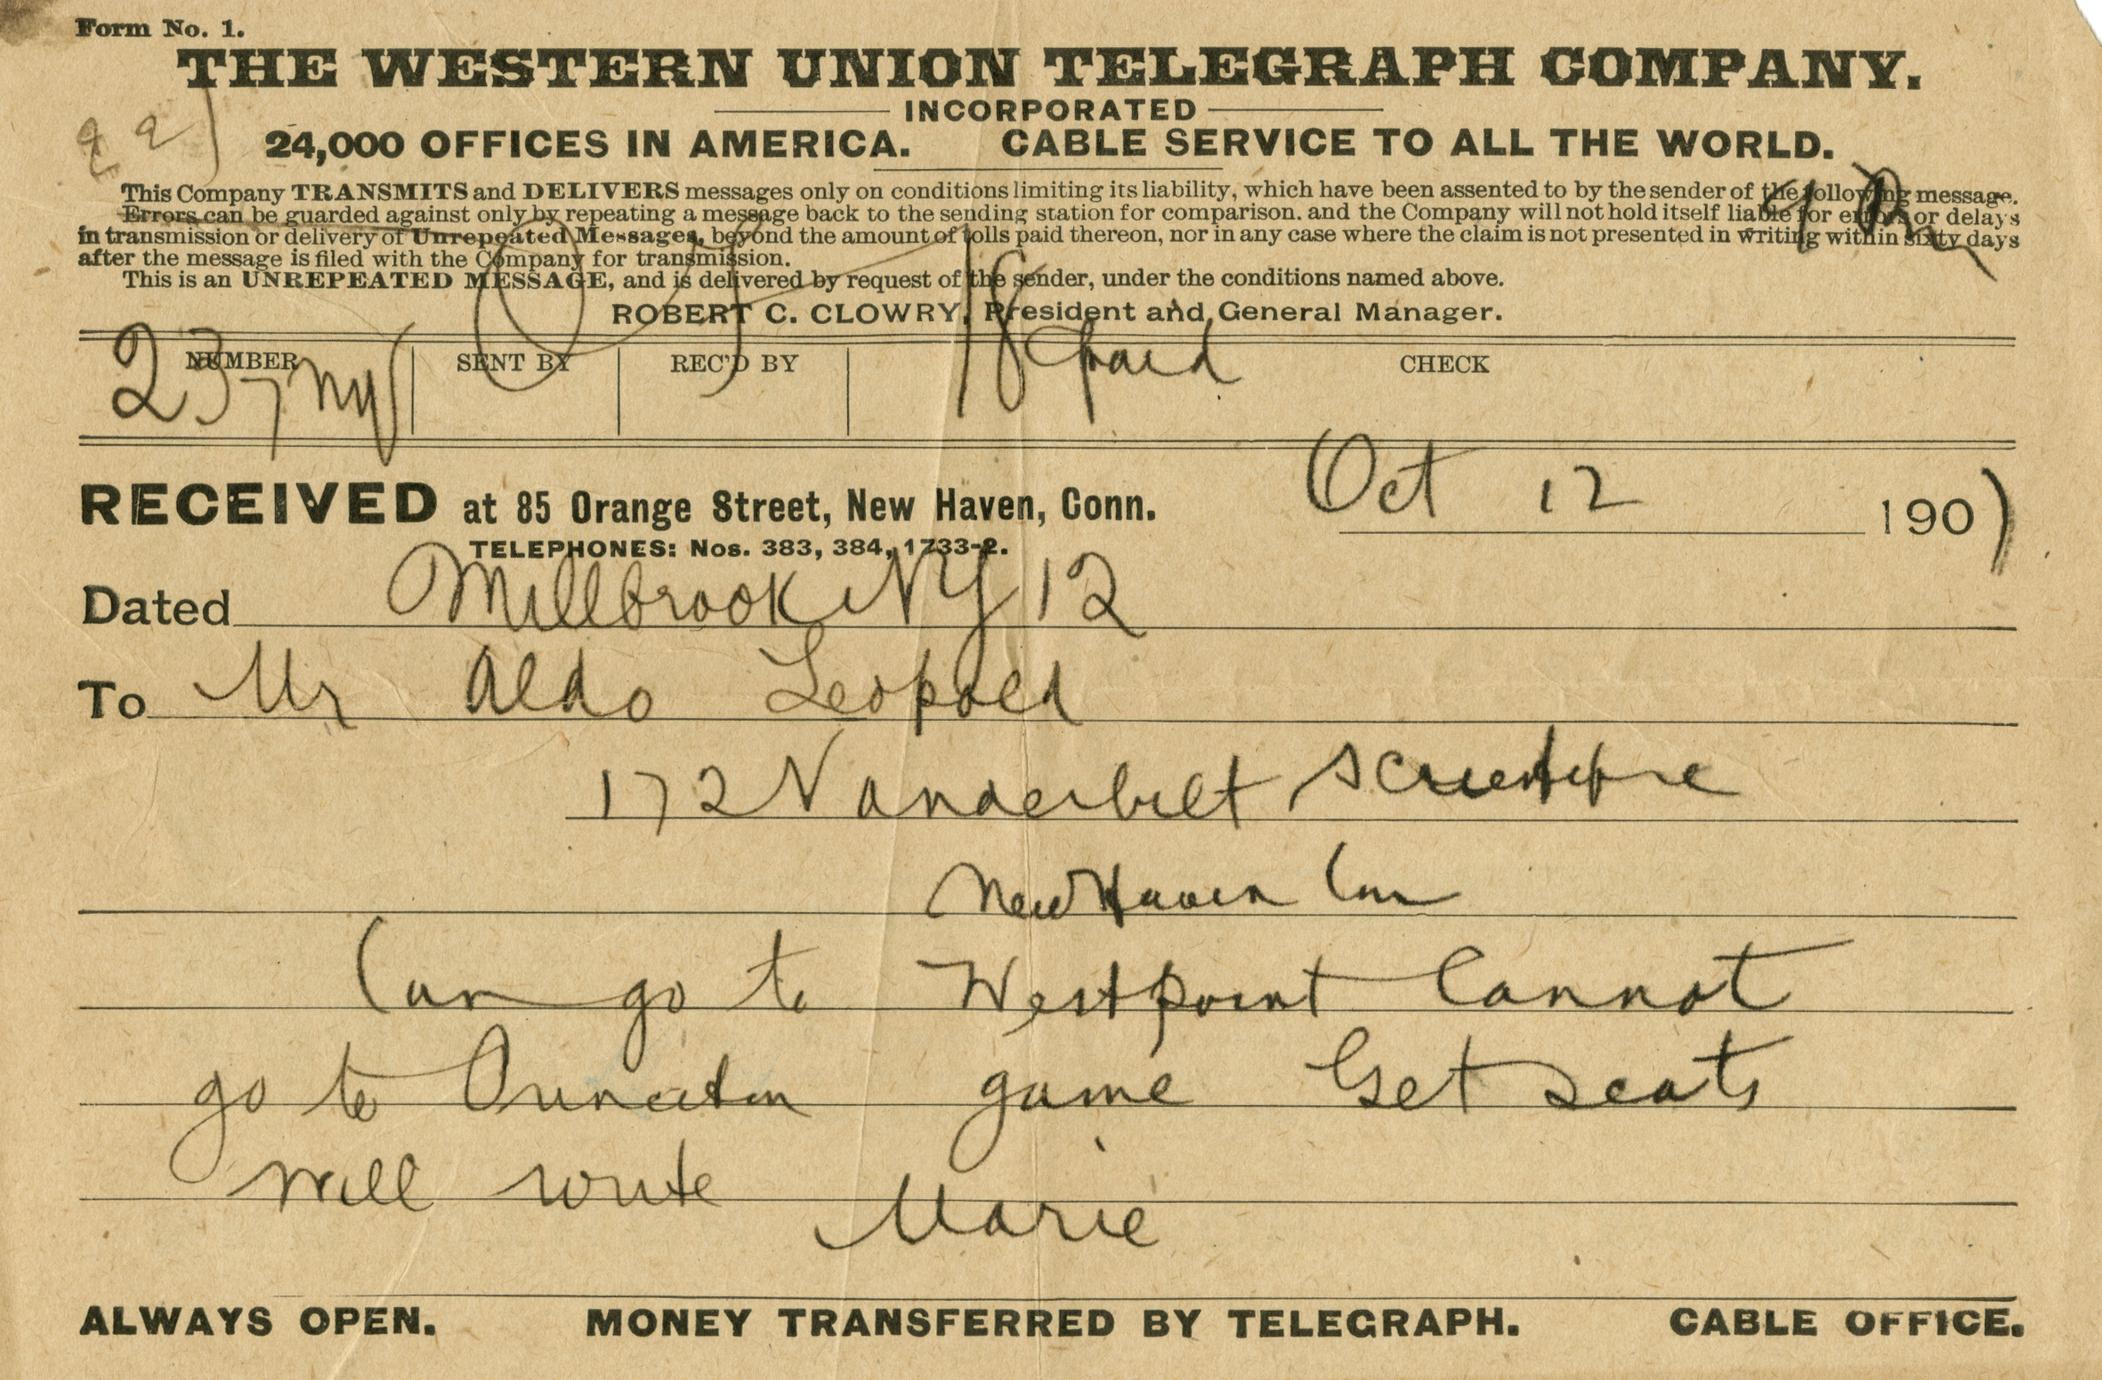 Form No. 1.
THE WESTERN UNION TELEGRAPH COMPANY.
INCORPORATED
24,000 OFFICES IN AMERICA. CABLE SERVICE TO ALL THE WORLD.
This Company TRANSMITS and DELIVERS messages only on conditions limiting its liability, which have been assented to by the sender of the following message.
Errors can be guarded against only by repeating a message back to the sending station for comparison. and the Company will not hold itself liable for errors or delays
in transmission or delivery of Unrepeated Messages, beyond the amount of tolls paid thereon, nor in any case where the claim is not presented in writing within sixty days
after the message is filed with the Company for transmission.
This is an UNREPEATED MESSAGE, and is delivered by request of the sender, under the conditions named above.
ROBERT C. CLOWRY, President and General Manager.
NUMBER SENT BY REC'D BY CHECK
237 ny 18 paid
RECEIVED at 85 Orange Street, New Haven, Conn. Oct 12 1907
TELEPHONES: Nos. 383, 384, 1733-2.
Dated Millbrook NY 12
To Mr Aldo Leopold
172 Vanderbilt Scientific
New Haven Cnn
Can go to Westpoint Cannot
go to Princeton game Get seats
will write Marie
ALWAYS OPEN. MONEY TRANSFERRED BY TELEGRAPH. CABLE OFFICE.